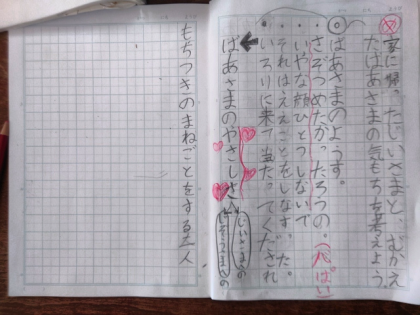 家に帰ったじいさまと、むかえ
たばあさまの気もちを考えよう
ばあさまのようす。
・さぞつめたかったろうの。(心ぱい)
・いやな顔ひとつしないで
・それはええことをしなすった。
・いろりに来て当たってくだされ
ばあさまのやさしさ
じいさまの
もちつきのまねごとをする二人